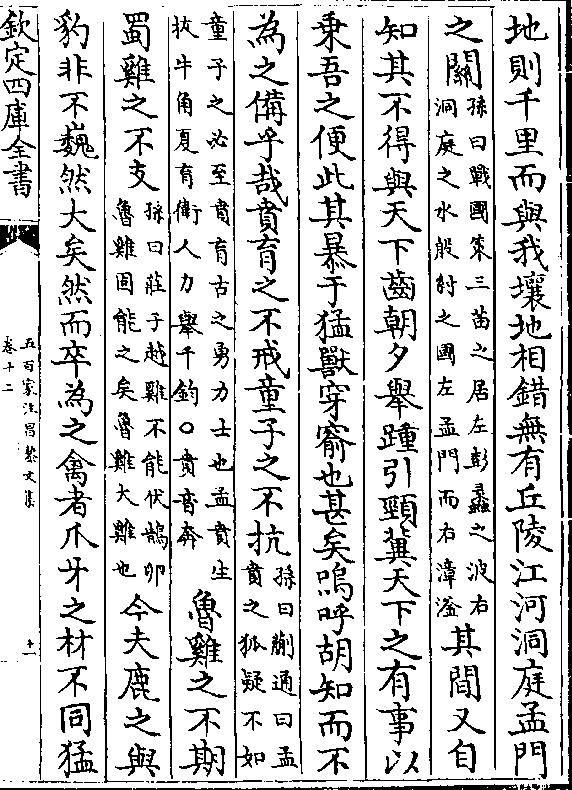 地則千里而與我壤地相錯無有丘陵江河洞庭孟門
之關
孫曰戰國策三苗之居左彭蠡之波右
洞庭之水殷紂之國左孟門而右漳滏
其間又自
知其不得與天下齒朝夕舉踵引頸冀天下之有事以
乗吾之便此其暴于猛獸穿窬也甚矣嗚呼胡知而不
為之備乎哉賁育之不戒童子之不抗
孫曰蒯通曰孟
賁之狐疑不如
童子之必至賁育古之勇力士也孟賁生
抜牛角夏育衛人力舉千鈞○賁音奔
魯雞之不期
蜀雞之不支
孫曰莊子越雞不能伏鵠卵
魯雞固能之矣魯雞大雞也
今夫鹿之與
豹非不巍然大矣然而卒為之禽者爪牙之材不同猛
欽定四庫全書
五百家注昌黎文集
卷十二
十一